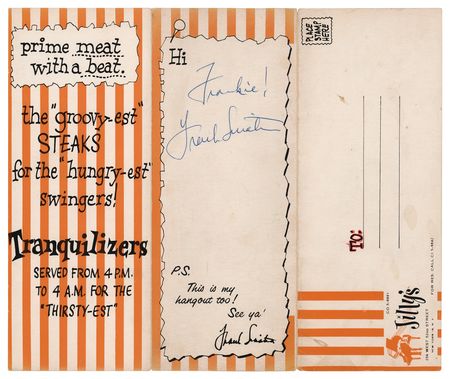 prime meat
with a beat.
the "groovy-est"
STEAKS
for the "hungry-est"
swingers!
Tranquilizers
SERVED FROM 4 P.M.
TO 4 A.M. FOR THE
"THIRSTY-EST"
Hi
Frankie!
Frank Sinatra
P.S.
This is my
hangout too!
See ya'
Frank Sinatra
PLACE
STAMP
HERE
TO:
Jilly's
256 WEST 52nd STREET
NEW YORK 19, N.Y.
FOR RES. CALL CI 5-9861